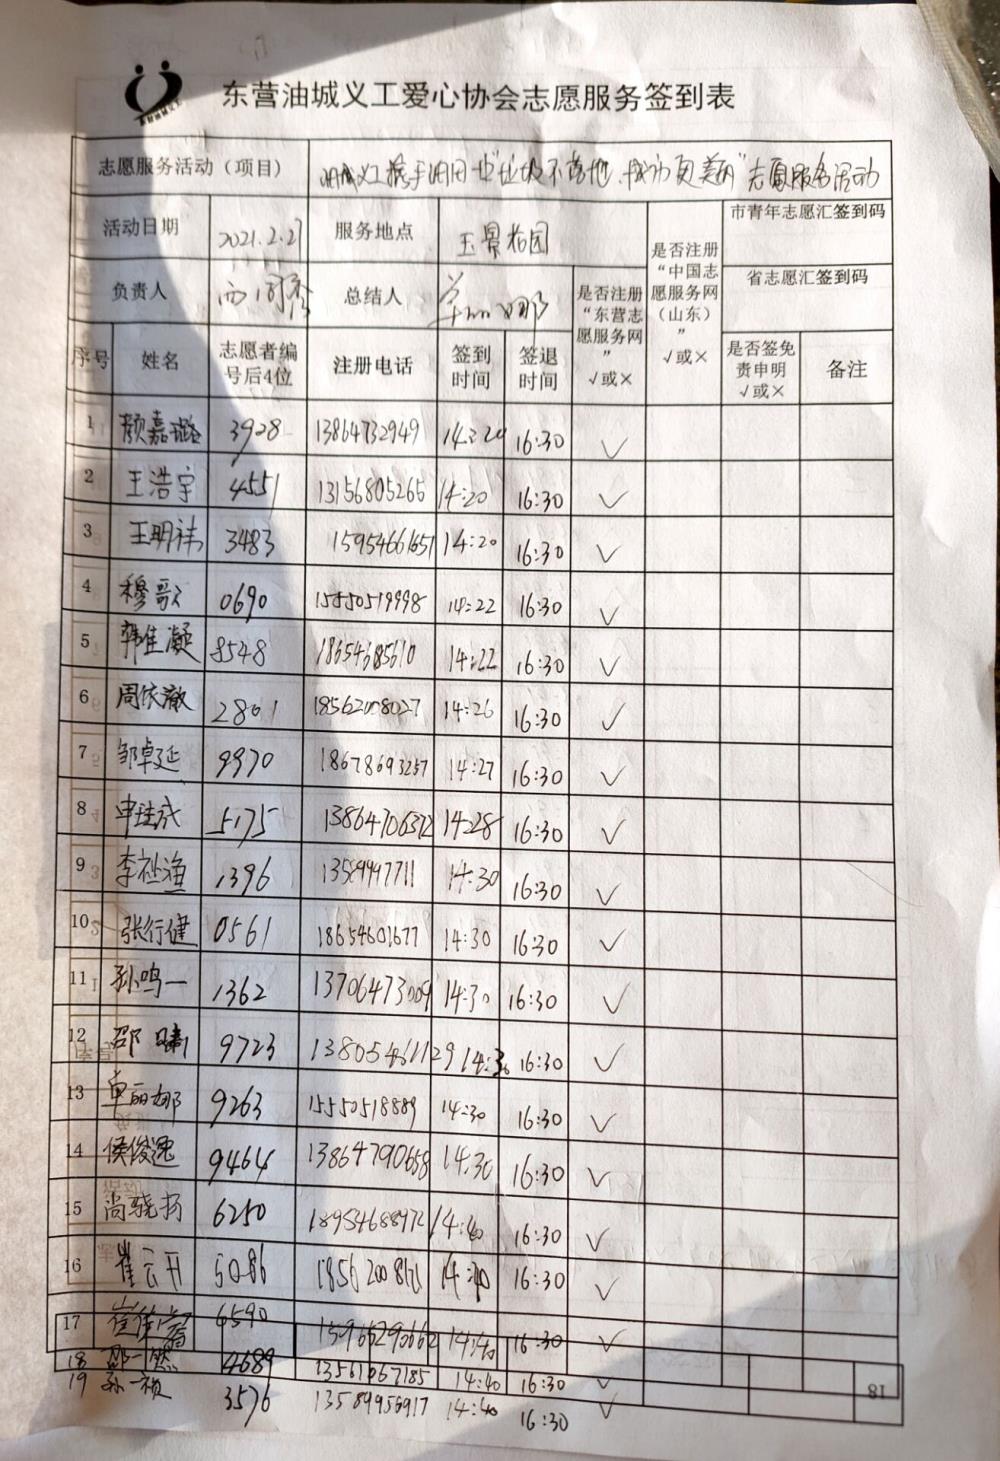 东营油城义工爱心协会志愿服务签到表
志愿服务活动（项目） 油城义工携手油田 "垃圾不落地，城市更美丽"志愿服务活动
活动日期 2021.2.27 服务地点
负责人 总结人
是否注册“东营志愿服务网” √或×
是否注册“中国志愿服务网（山东）” √或×
市青年志愿汇签到码
省志愿汇签到码
序号 姓名 志愿者编号后4位 注册电话 签到时间 签退时间 是否签免责申明 √或× 备注
1 颜嘉璐 3928 13864732949 14:20 16:30 √
2 王浩宇 4551 13156805265 14:20 16:30 √
3 王明祎 3483 15954661651 14:20 16:30 √
4 穆歌 0690 15550519998 14:22 16:30 √
5 韩佳凝 8548 18654685610 14:22 16:30 √
6 周依澈 2801 18562008027 14:26 16:30 √
7 邹卓延 9970 18678693257 14:27 16:30 √
8 5175 13864706372 14:28 16:30 √
9 1396 13589997711 14:30 16:30 √
10 张行健 0561 18654601677 14:30 16:30 √
11 孙鸣一 1362 13706473009 14:30 16:30 √
12 邵 9723 13805461129 14:30 16:30 √
13 卓丽娜 9263 15550518889 14:30 16:30 √
14 侯俊逸 9464 13864790658 14:30 16:30 √
15 尚骁扬 6250 18954688972 14:40 16:30 √
16 崔云开 5086 14:40 16:30 √
17 6590 14:40 16:30 √
18 邵一然 4689 13561067185 14:40 16:30 √
19 孙一祯 3576 13589956917 14:40 16:30 √